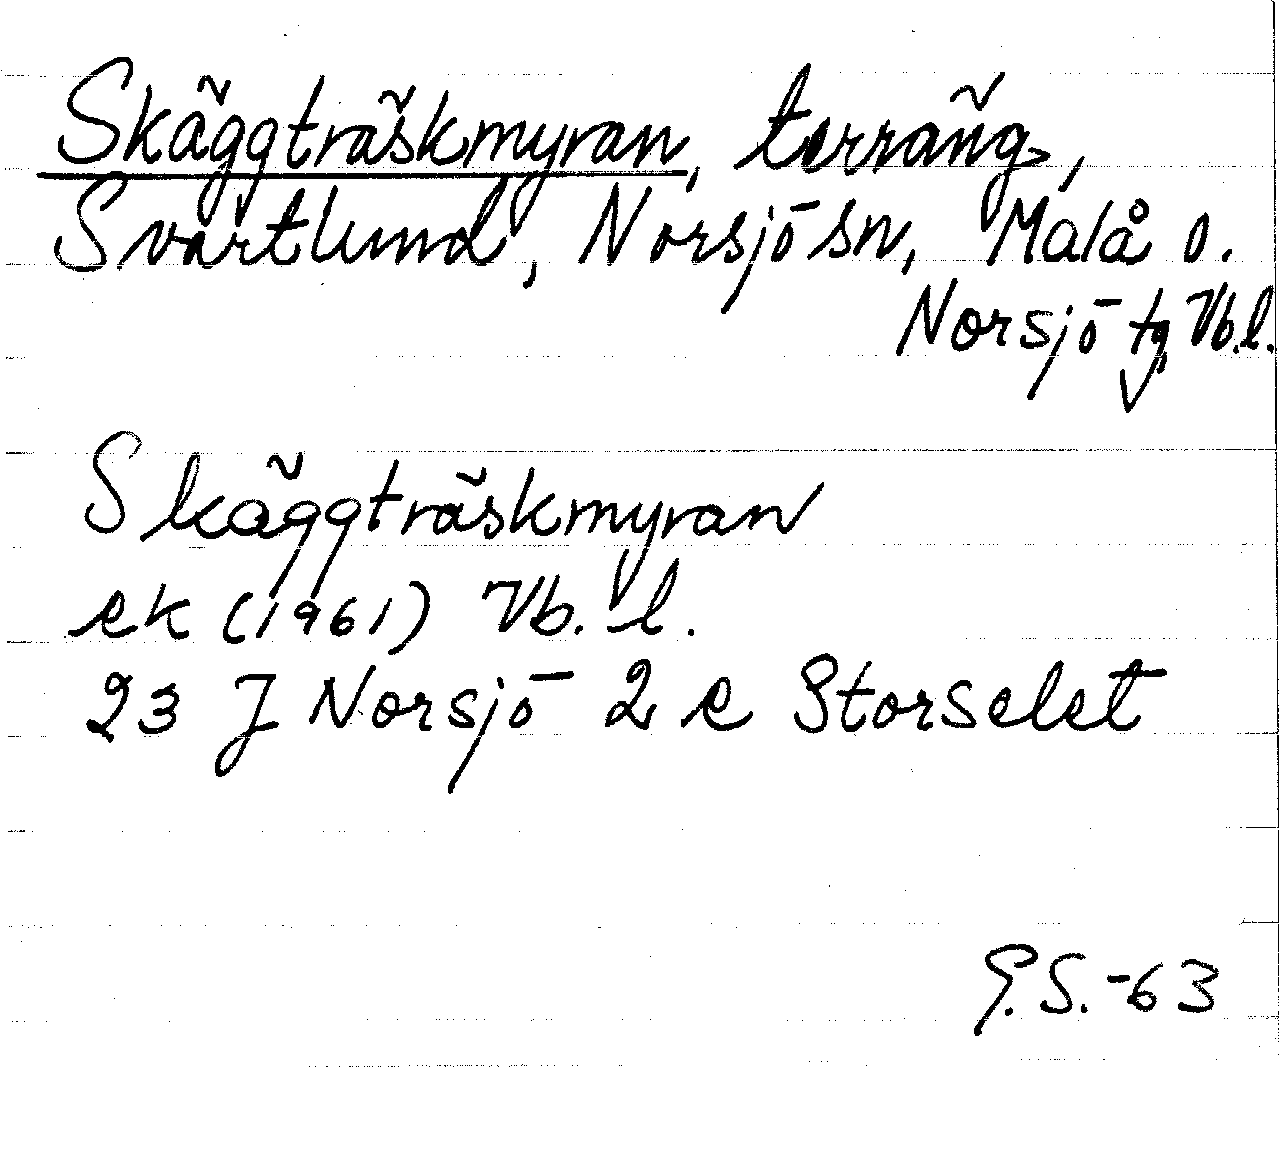 Skäggträskmyran, terräng,
Svartlund, Norsjö sn, Malå o.
Norsjö tg, Vb.l.
Skäggträskmyran
ek (1961) Vb. l.
23 J Norsjö 2 e Storselet
G.S.-63